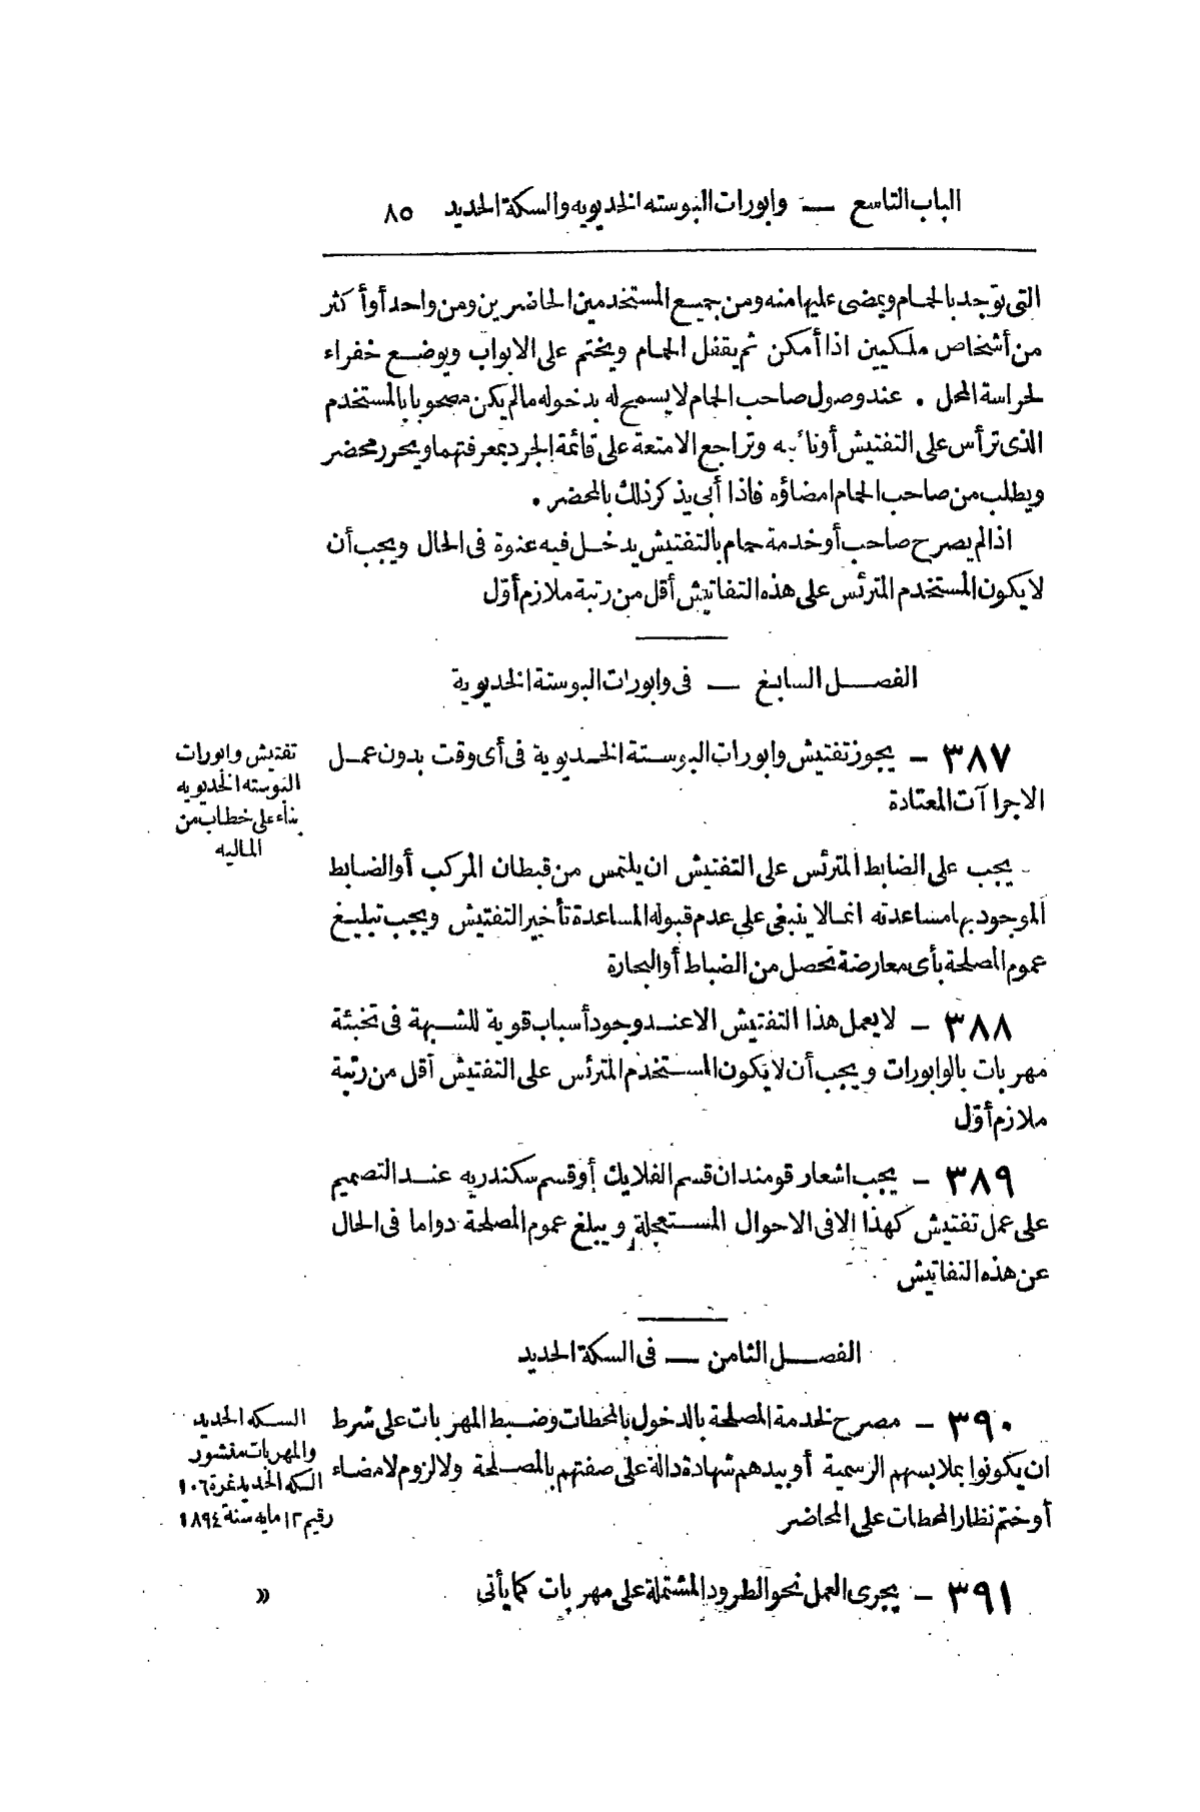 الباب التاسع — وابورات البوسته الخديويه والسكة الحديد ٨٥
التى توجد بالحمام ويمضى عليها منه ومن جميع المستخدمين الحاضرين ومن واحد أو أكثر
من أشخاص ملكيين اذا أمكن ثم يقفل الحمام ويختم على الابواب ويوضع خفراء
لحراسة المحل . عند وصول صاحب الحمام لا يسمح له بدخوله مالم يكن مصحوبا بالمستخدم
الذى ترأس على التفتيش أو نائبه وتراجع الامتعة على قائمة الجرد بمعرفتهما ويحرر محضر
ويطلب من صاحب الحمام امضاؤه فاذا أبى يذكر ذلك بالمحضر .
اذا لم يصرح صاحب أو خدمة حمام بالتفتيش يدخل فيه عنوة فى الحال ويجب أن
لا يكون المستخدم المترئس على هذه التفاتيش أقل من رتبة ملازم أوّل
الفصل السابع — فى وابورات البوستة الخديوية
٣٨٧ — يجوز تفتيش وابورات البوستة الخديوية فى أى وقت بدون عمل
الاجراآت المعتادة
تفتيش وابورات
البوسته الخديويه
بناء على خطاب من
الماليه
يجب على الضابط المترئس على التفتيش ان يلتمس من قبطان المركب أو الضابط
الموجود بها مساعدته انما لا ينبغى على عدم قبوله المساعدة تأخير التفتيش ويجب تبليغ
عموم المصلحة بأى معارضة تحصل من الضباط أو البحارة
٣٨٨ — لا يعمل هذا التفتيش الا عند وجود أسباب قوية للشبهة فى تخبئة
مهربات بالوابورات ويجب أن لا يكون المستخدم المترئس على التفتيش أقل من رتبة
ملازم أوّل
٣٨٩ — يجب اشعار قومندان قسم الفلايك أو قسم سكندريه عند التصميم
على عمل تفتيش كهذا الا فى الاحوال المستعجلة ويبلغ عموم المصلحة دواما فى الحال
عن هذه التفاتيش
الفصل الثامن — فى السكة الحديد
٣٩٠ — مصرح لخدمة المصلحة بالدخول بالمحطات وضبط المهربات على شرط
ان يكونوا بملابسهم الرسمية أو بيدهم شهادة دالة على صفتهم بالمصلحة ولا لزوم لامضاء
أو ختم نظار المحطات على المحاضر
السكه الحديد
والمهربات منشور
السكه الحديد نمرة ١٠٦
رقيم ١٢ مايه سنة ١٨٩٤
٣٩١ — يجرى العمل نحو الطرود المشتملة على مهربات كما يأتى
»